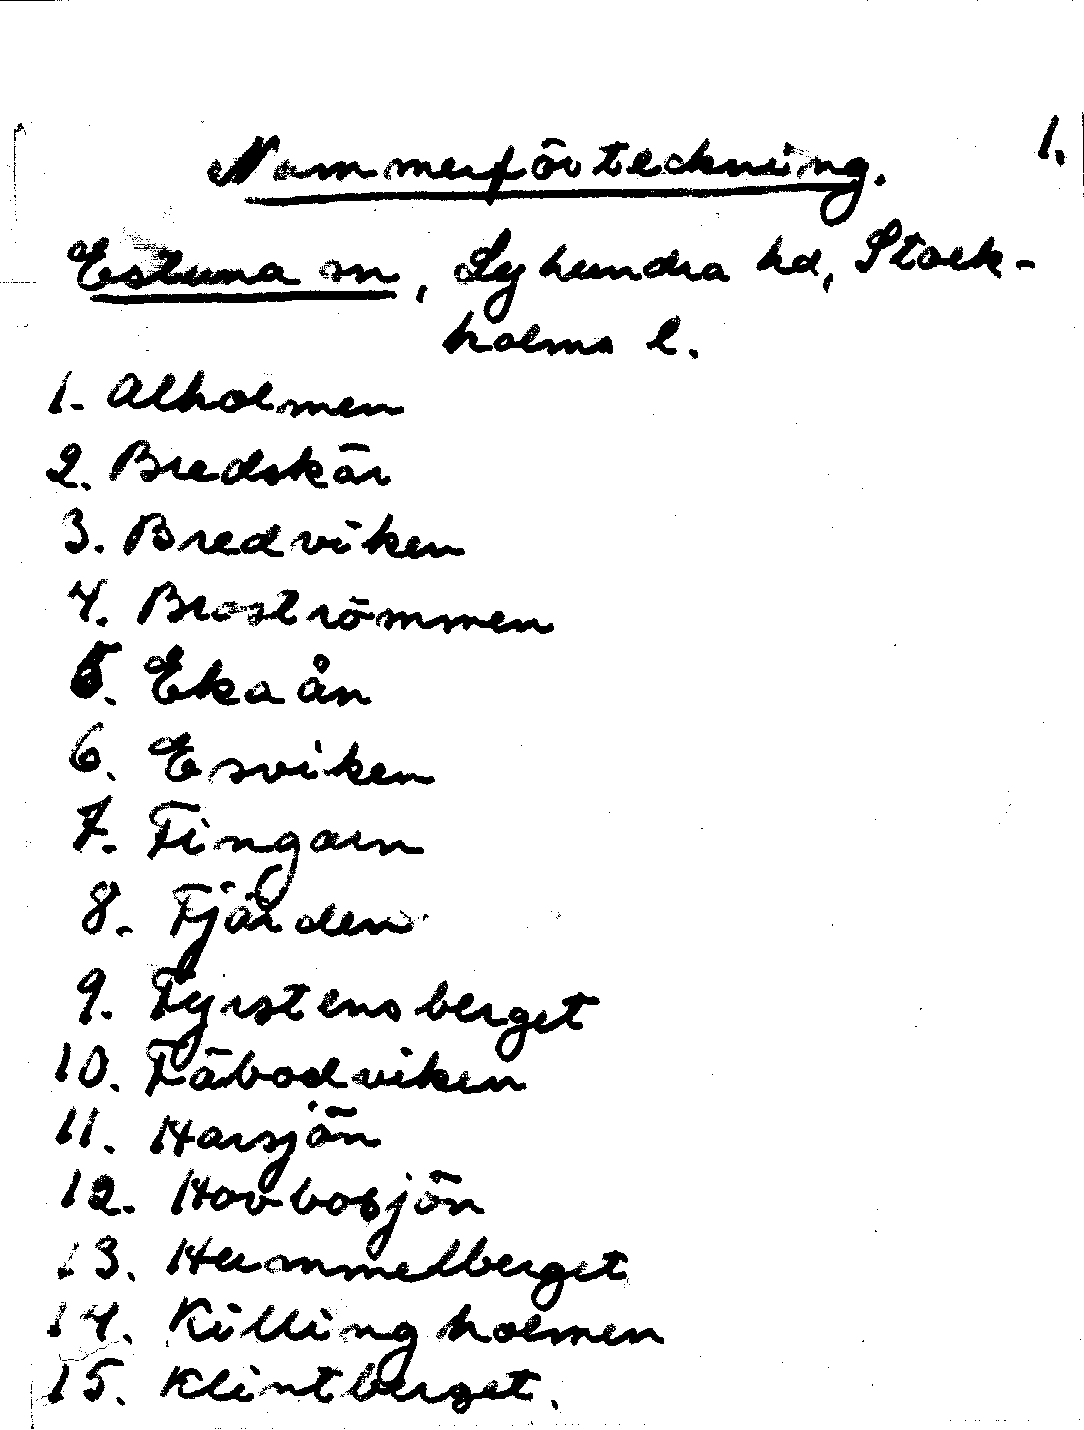 1.
Nummerförteckning.
Estuna sn, Lyhundra hd, Stock-
holms l.
1. Alholmen
2. Bredskär
3. Bredviken
4. Broströmmen
5. Ekaån
6. Esviken
7. Fingarn
8. Fjärden
9. Fyrstensberget
10. Fäbodviken
11. Harsjön
12. Hovbosjön
13. Hummelberget
14. Killingholmen
15. Klintberget.